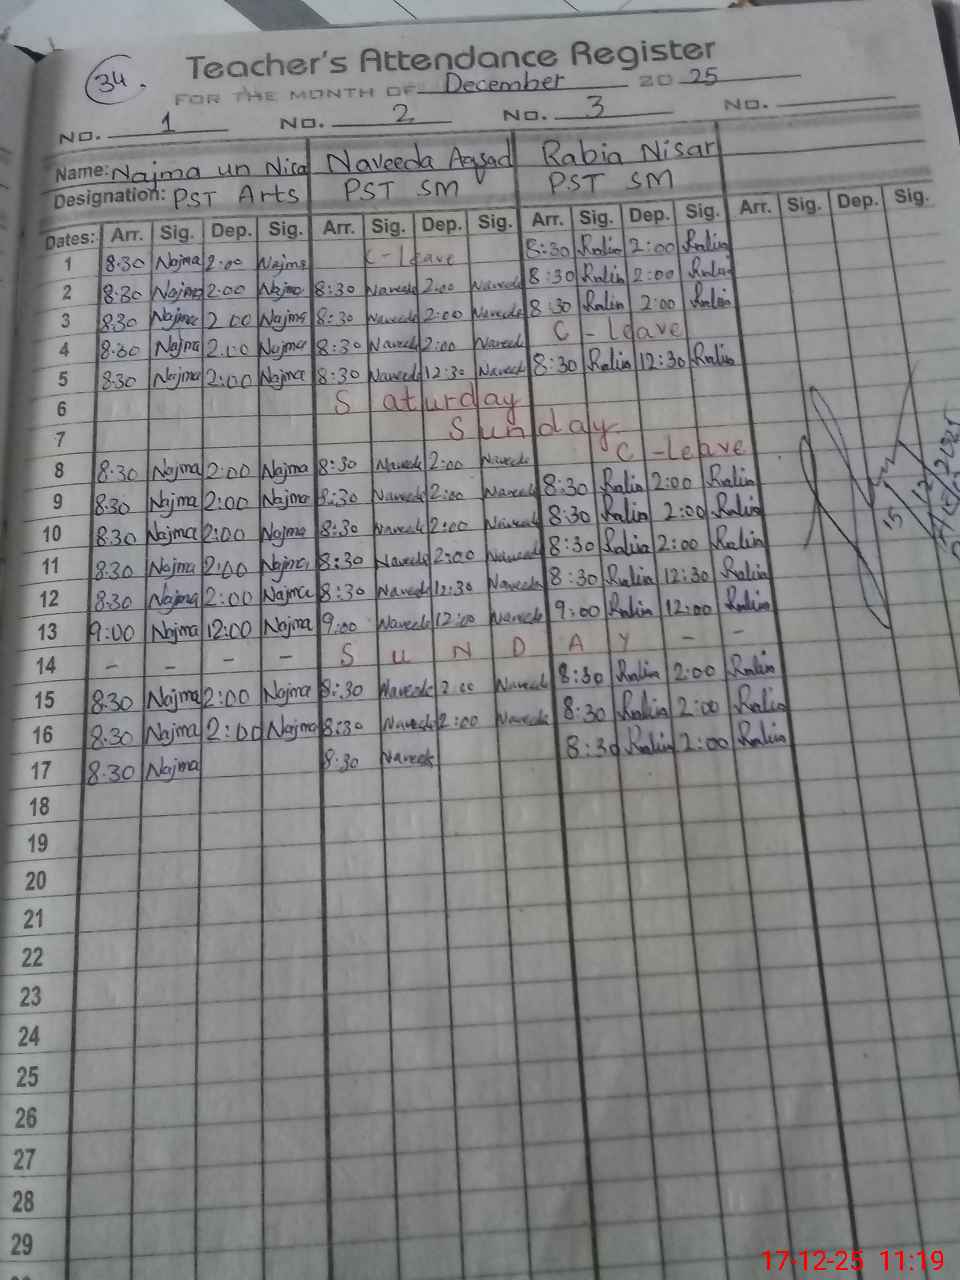 34.
Teacher's Attendance Register
FOR THE MONTH OF December 20 25
NO. 1 NO. 2 NO. 3 NO.
Name: Najma un Nisa Naveeda Aqsad Rabia Nisar
Designation: PST Arts PST SM PST SM
Dates: Arr. Sig. Dep. Sig. Arr. Sig. Dep. Sig. Arr. Sig. Dep. Sig. Arr. Sig. Dep. Sig.
1 8.30 Najma 2:00 Najma C-leave 8:30 Rabia 2:00 Rabia
2 8.30 Najma 2:00 Najma 8:30 Naveeda 2:00 Naveeda 8:30 Rabia 2:00 Rabia
3 8.30 Najma 2:00 Najma 8:30 Naveeda 2:00 Naveeda 8:30 Rabia 2:00 Rabia
4 8.30 Najma 2:00 Najma 8:30 Naveeda 2:00 Naveeda C-leave
5 8.30 Najma 2:00 Najma 8:30 Naveeda 12:30 Naveeda 8:30 Rabia 12:30 Rabia
6 Saturday
7 Sunday
8 8.30 Najma 2:00 Najma 8:30 Naveeda 2:00 Naveeda C-leave
9 8.30 Najma 2:00 Najma 8:30 Naveeda 2:00 Naveeda 8:30 Rabia 2:00 Rabia
10 8.30 Najma 2:00 Najma 8:30 Naveeda 2:00 Naveeda 8:30 Rabia 2:00 Rabia
11 8.30 Najma 2:00 Najma 8:30 Naveeda 2:00 Naveeda 8:30 Rabia 2:00 Rabia
12 8.30 Najma 2:00 Najma 8:30 Naveeda 12:30 Naveeda 8:30 Rabia 12:30 Rabia
13 9:00 Najma 12:00 Najma 9:00 Naveeda 12:00 Naveeda 9:00 Rabia 12:00 Rabia
14 - - - - S U N D A Y - -
15 8.30 Najma 2:00 Najma 8:30 Naveeda 2:00 Naveeda 8:30 Rabia 2:00 Rabia
16 8.30 Najma 2:00 Najma 8:30 Naveeda 2:00 Naveeda 8:30 Rabia 2:00 Rabia
17 8.30 Najma 8:30 Naveeda 8:30 Rabia 2:00 Rabia
18
19
20
21
22
23
24
25
26
27
28
29
17-12-25 11:19